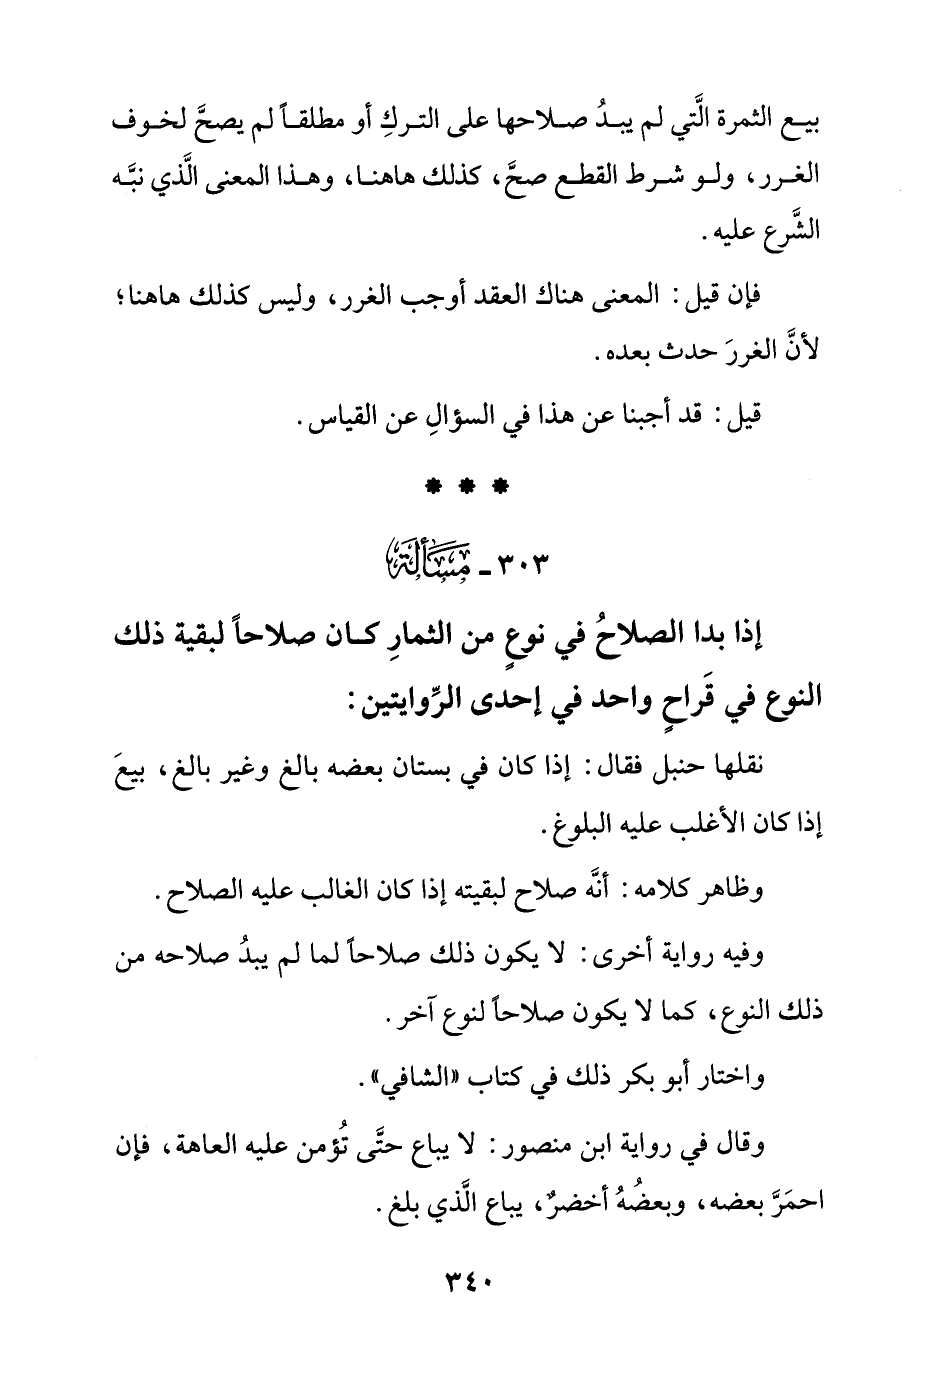 بيع الثمرة الَّتي لم يبدُ صلاحها على التركِ أو مطلقاً لم يصحَّ لخوف
الغرر، ولو شرط القطع صحَّ، كذلك هاهنا، وهذا المعنى الَّذي نبَّه
الشَّرع عليه.
فإن قيل: المعنى هناك العقد أوجب الغرر، وليس كذلك هاهنا؛
لأنَّ الغررَ حدث بعده.
قيل: قد أجبنا عن هذا في السؤالِ عن القياس.
* * *
٣٠٣ - مَسْأَلَة
إذا بدا الصلاحُ في نوعٍ من الثمارِ كان صلاحاً لبقية ذلك
النوع في قَراحٍ واحد في إحدى الرِّوايتين:
نقلها حنبل فقال: إذا كان في بستان بعضه بالغ وغير بالغ، بيعَ
إذا كان الأغلب عليه البلوغ.
وظاهر كلامه: أنَّه صلاح لبقيته إذا كان الغالب عليه الصلاح.
وفيه رواية أخرى: لا يكون ذلك صلاحاً لما لم يبدُ صلاحه من
ذلك النوع، كما لا يكون صلاحاً لنوع آخر.
واختار أبو بكر ذلك في كتاب «الشافي».
وقال في رواية ابن منصور: لا يباع حتَّى تُؤمن عليه العاهة، فإن
احمَرَّ بعضه، وبعضُهُ أخضرٌ، يباع الَّذي بلغ.
٣٤٠